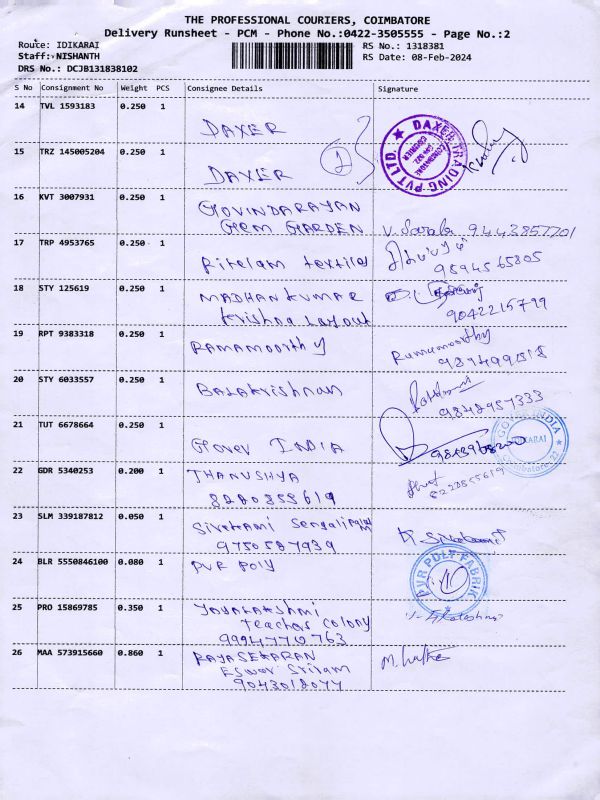 THE PROFESSIONAL COURIERS, COIMBATORE
Delivery Runsheet - PCM - Phone No.:0422-3505555 - Page No.:2
Route: IDIKARAI RS No.: 1318381
Staff: NISHANTH RS Date: 08-Feb-2024
DRS No.: DCJB131838102
S No Consignment No Weight PCS Consignee Details Signature
14 TVL 1593183 0.250 1
DAXER
DAXER TRADING PVT LTD.
15 TRZ 145005204 0.250 1
DAXER
2
16 KVT 3007931 0.250 1
GOVINDARAYAN
Gem GARDEN V. Sarala 9443857701
17 TRP 4953765 0.250 1
Ritelam textiles 9894565805
18 STY 125619 0.250 1
MADHANKUMAR
Krishna Layout 9042215799
19 RPT 9383318 0.250 1
RAMAMOORTHY Ramamoorthy
20 STY 6033557 0.250 1
BALAKrishnan 9848957333
21 TUT 6678664 0.250 1
Gover INDIA
IDIKARAI
22 GDR 5340253 0.200 1
THANUSHYA
8220855619 8220855619
23 SLM 339187812 0.050 1
Sivakami Sengalipalayam
9750587939 K Sivakami
24 BLR 5550846100 0.080 1
PVR POly
PVR POLY FABRIK
25 PRO 15869785 0.350 1
JAYALAKshmi
teacher colony
9994770763
26 MAA 573915660 0.860 1
RAJASEKARAN
Eswar Sriram
9043018077